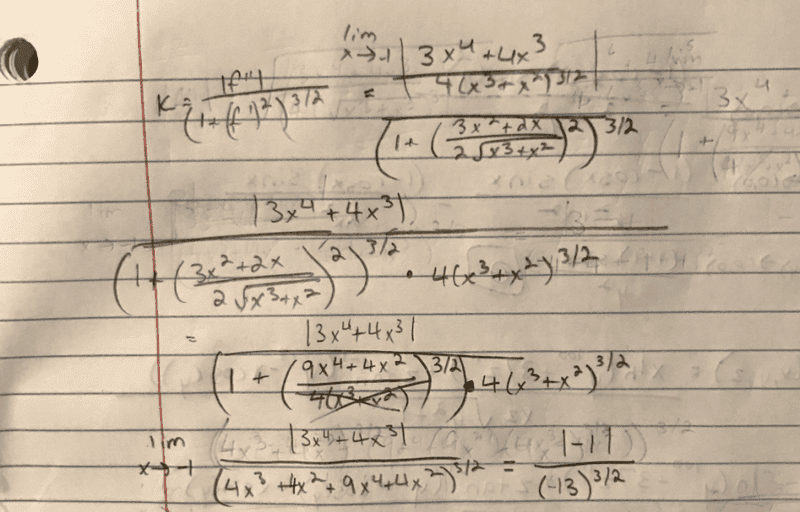 K = |f''| / (1+(f')^2)^{3/2} = lim x→-1 |(3x^4+4x^3) / (4(x^3+x^2)^{3/2})| / (1+((3x^2+2x) / (2√(x^3+x^2)))^2)^{3/2}
|3x^4+4x^3| / ((1+((3x^2+2x) / (2√(x^3+x^2)))^2)^{3/2} · 4(x^3+x^2)^{3/2})
= |3x^4+4x^3| / ((1+((9x^4+4x^2) / (4(x^3+x^2)))^{3/2}) · 4(x^3+x^2)^{3/2})
lim x→-1 |3x^4+4x^3| / (4x^3+4x^2+9x^4+4x^2)^{3/2} = |-1| / (-13)^{3/2}